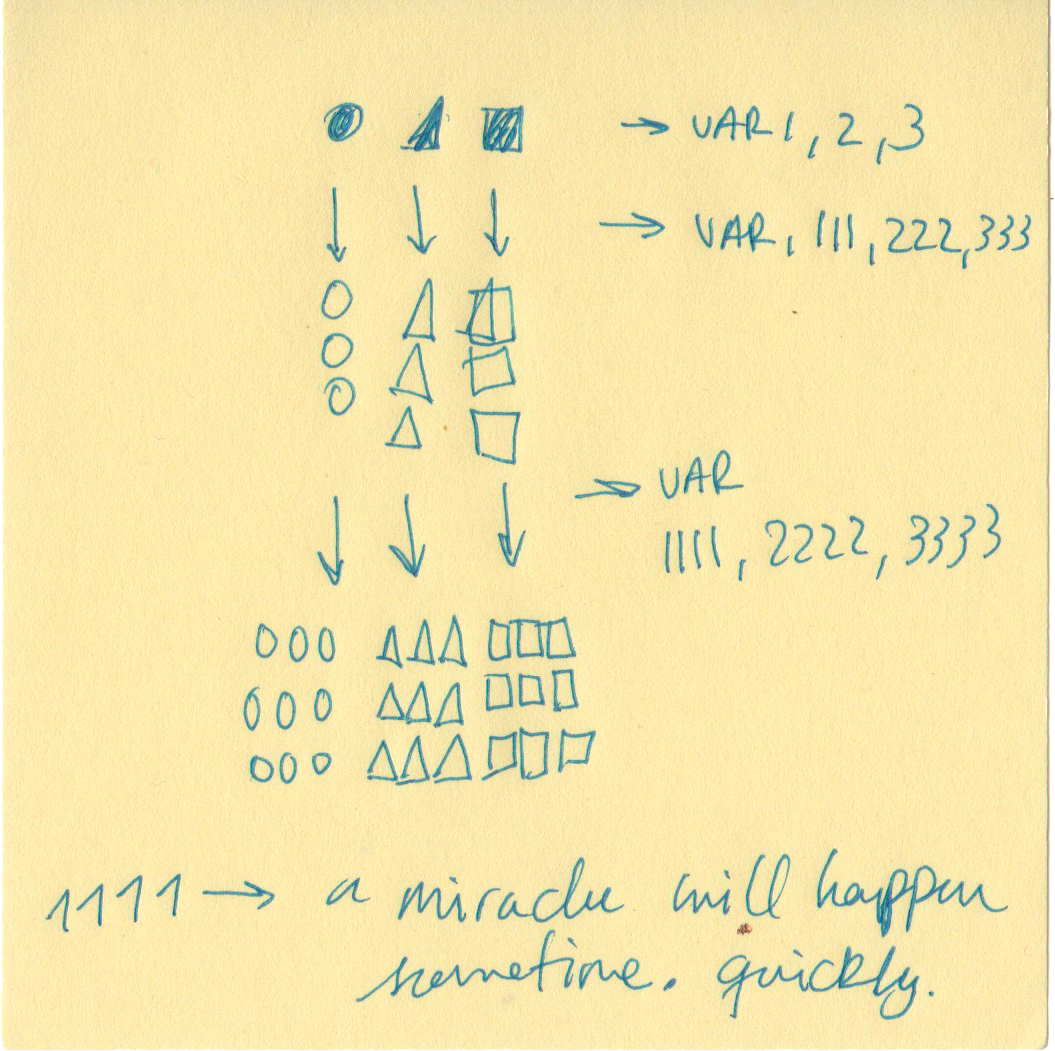 → VAR 1, 2, 3
→ VAR, 111, 222, 333
→ VAR
1111, 2222, 3333
1111 → a miracle will happen
sometime. quickly.